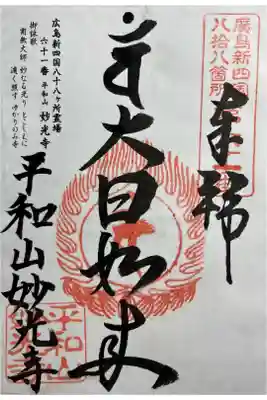 廣島新四国
八拾八箇所
奉拝
大日如来
広島新四国八十八ヶ所霊場
六十一番 平和山 妙光寺
御詠歌
南無大師 妙なる光り とこともに
遍く照す ゆかりのみ寺
平和山妙光寺
平和山